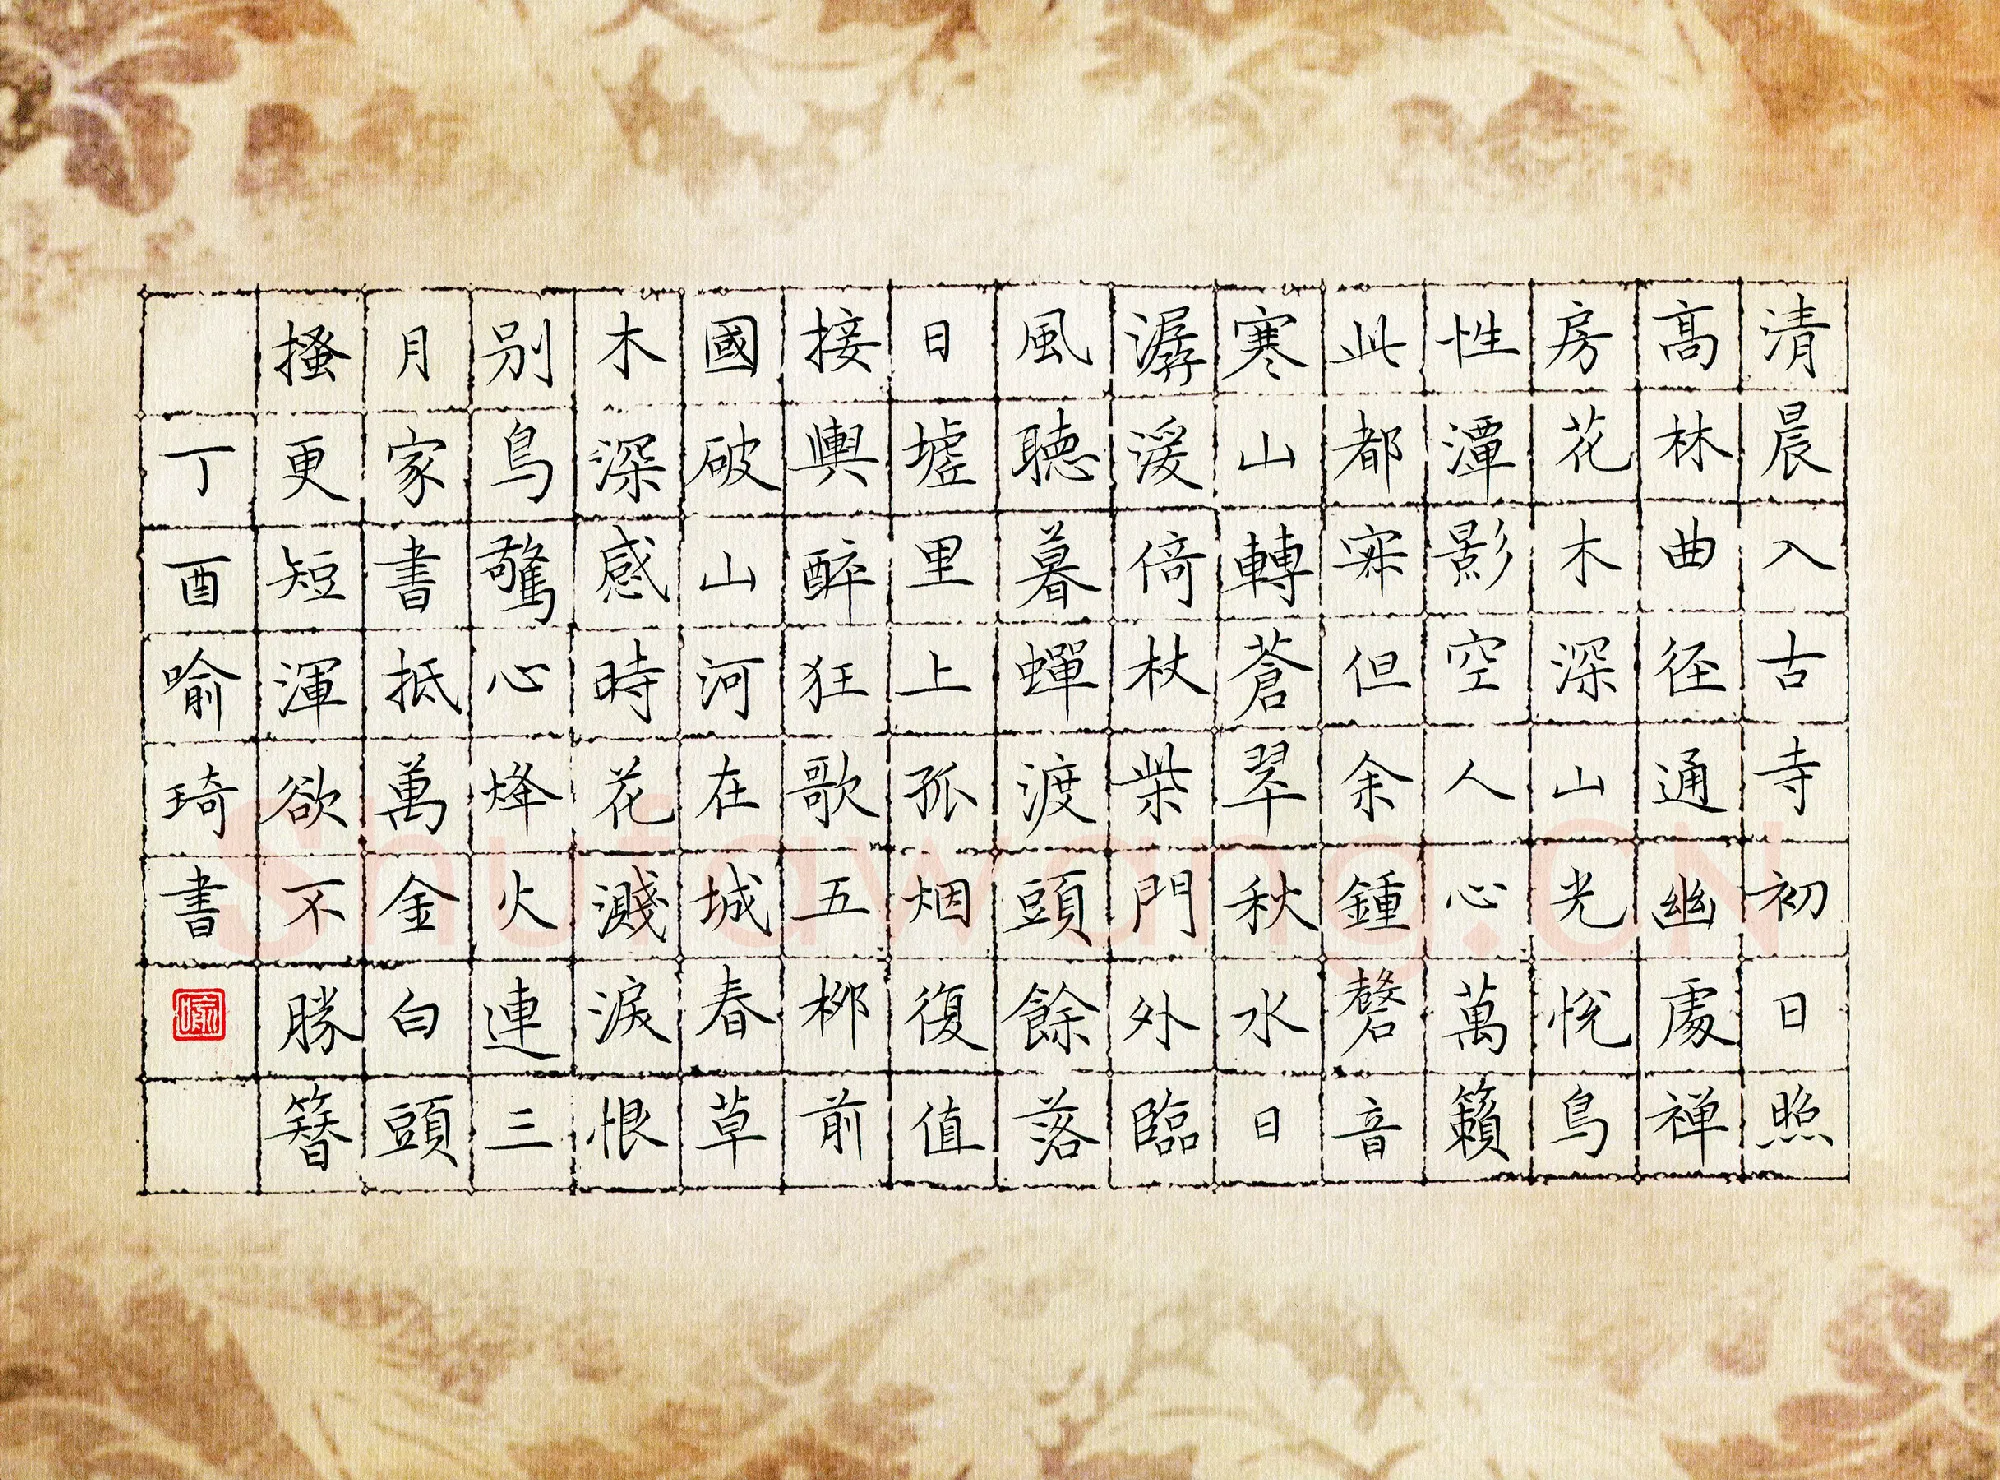 清晨入古寺初日照
髙林曲径通幽處禅
房花木深山光悦鸟
性潭影空人心萬籟
此都寂但余鍾磬音
寒山轉蒼翠秋水日
潺湲倚杖柴門外臨
風聽暮蟬渡頭餘落
日墟里上孤烟復值
接輿醉狂歌五柳前
國破山河在城春草
木深感時花濺淚恨
别鸟驚心烽火連三
月家書抵萬金白頭
搔更短渾欲不勝簪
丁酉喻琦書
喻
Shufawang.CN